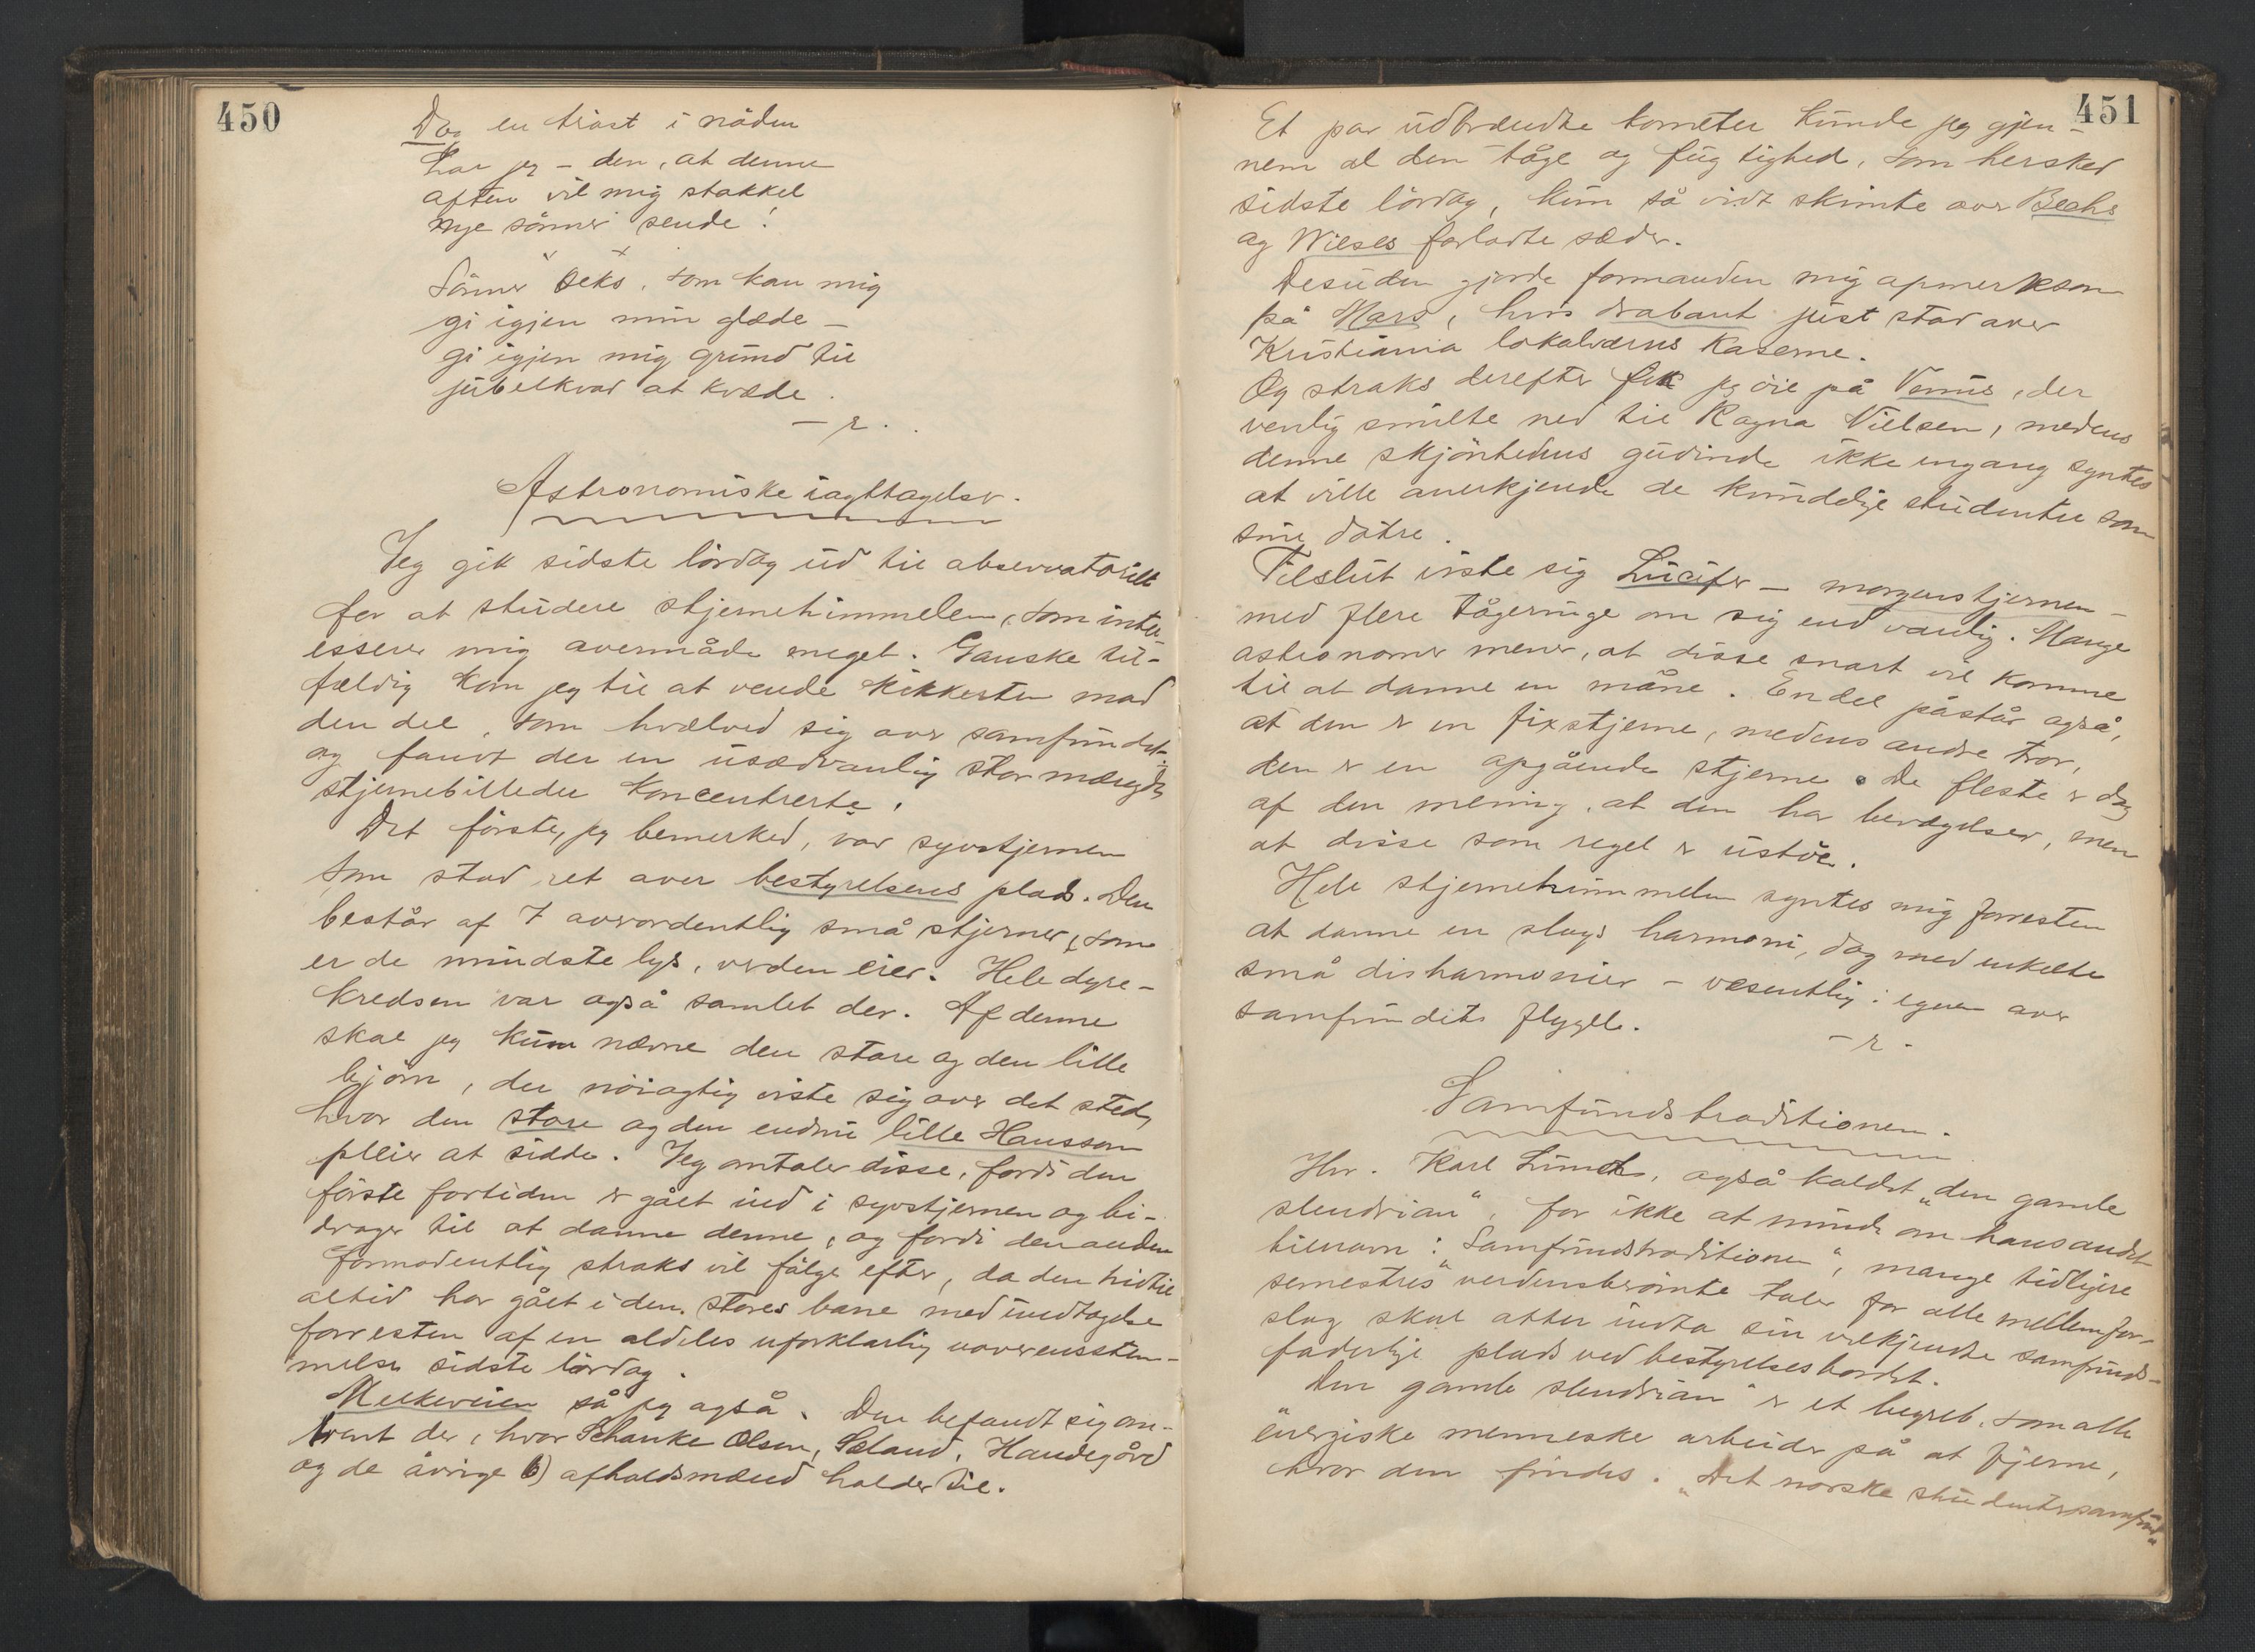 450
Dog en tröst i nöden
har jeg – den, at denne
aften vil mig stakkel
nye sönner sende!
Sönner "seks", som kan mig
gi igjen min glæde –
gi igjen mig grund til
jubelkvad at kvæde.
– r. .
Astronomiske iagttagelser.
Jeg gik sidste lördag ud til observatoriet
for at studere stjernehimmelen, som inter-
esserer mig overmåde meget. Ganske til-
fældig kom jeg til at vende kikkerten mod
den del, som hvælved sig over samfundet
og fandt der en usædvanlig stor mængde
stjernebilleder koncentrerte.
Det förste, jeg bemerked, var syvstjernen
som stod ret over bestyrelsens plads. Den
består af 7 overordentlig små stjerner, som
er de mindste lys, verden eier. Hele dyre-
kredsen var også samlet der. Af denne
skal jeg kun nævne den store og den lille
björn, der nöiagtig viste sig over det sted,
hvor den store og den endnu lille Hansson
pleier at sidde. Jeg omtaler disse, fordi den
förste fortiden er gået ind i syvstjernen og bi-
drager til at danne denne, og fordi den anden
formodentlig straks vil fölge efter, da den hidtil
altid har gået i den stores bane med undtagelse
forresten af en aldeles uforklarlig uoverensstem-
melse sidste lördag.
Melkeveien så jeg også. Den befandt sig om-
trent der, hvor Schanke Olsen, Sæland, Handegård
og de övrige 6) afholdsmænd holder til.
451
Et par udbrændte kometer kunde jeg gjen-
nem al den tåge og fugtighed, som hersked
sidste lördag, kun så vidt skimte over Bechs
og Wieses forladte sæder.
Desuden gjorde formanden mig opmerksom
på Mars, hvis drabant just stod over
Kristiania lokalværns kaserne.
Og straks derefter fik jeg öie på Venus, der
venlig smilte ned til Ragna Nielsen, medens
denne skjönhedens gudinde ikke engang syntes
at ville anerkjende de kvindelige studenter som
sine dötre.
Tilslut viste sig Lucifer – morgenstjernen –
med flere tågeringe om sig end vanlig. Mange
astronomer mener, at disse snart vil komme
til at danne en måne. En del påstår også,
at den er en fixstjerne, medens andre tror,
den er en opgående stjerne. De fleste er dog
af den mening, at den har bevægelser, men
at disse som regel er ustöe.
Hele stjernehimmelen syntes mig forresten
at danne en slags harmoni, dog med enkelte
små disharmonier – væsentlig i egnen over
samfundets flygel.
– r –
Samfundstraditionen.
Hr. Karl Lunch, også kaldet "den gamle
slendrian", for ikke at minde om hans andet
tilnavn: "Samfundstraditionen", mange tidligere
semestres verdensberömte taler for alle mellemfor-
slag skal atter indta sin velkjendte samfunds-
faderlige plads ved bestyrelsesbordet.
"Den gamle slendrian" er et begreb, som alle
energiske menneske arbeider på at fjerne,
hvor den findes. "Det norske studentersamfund"